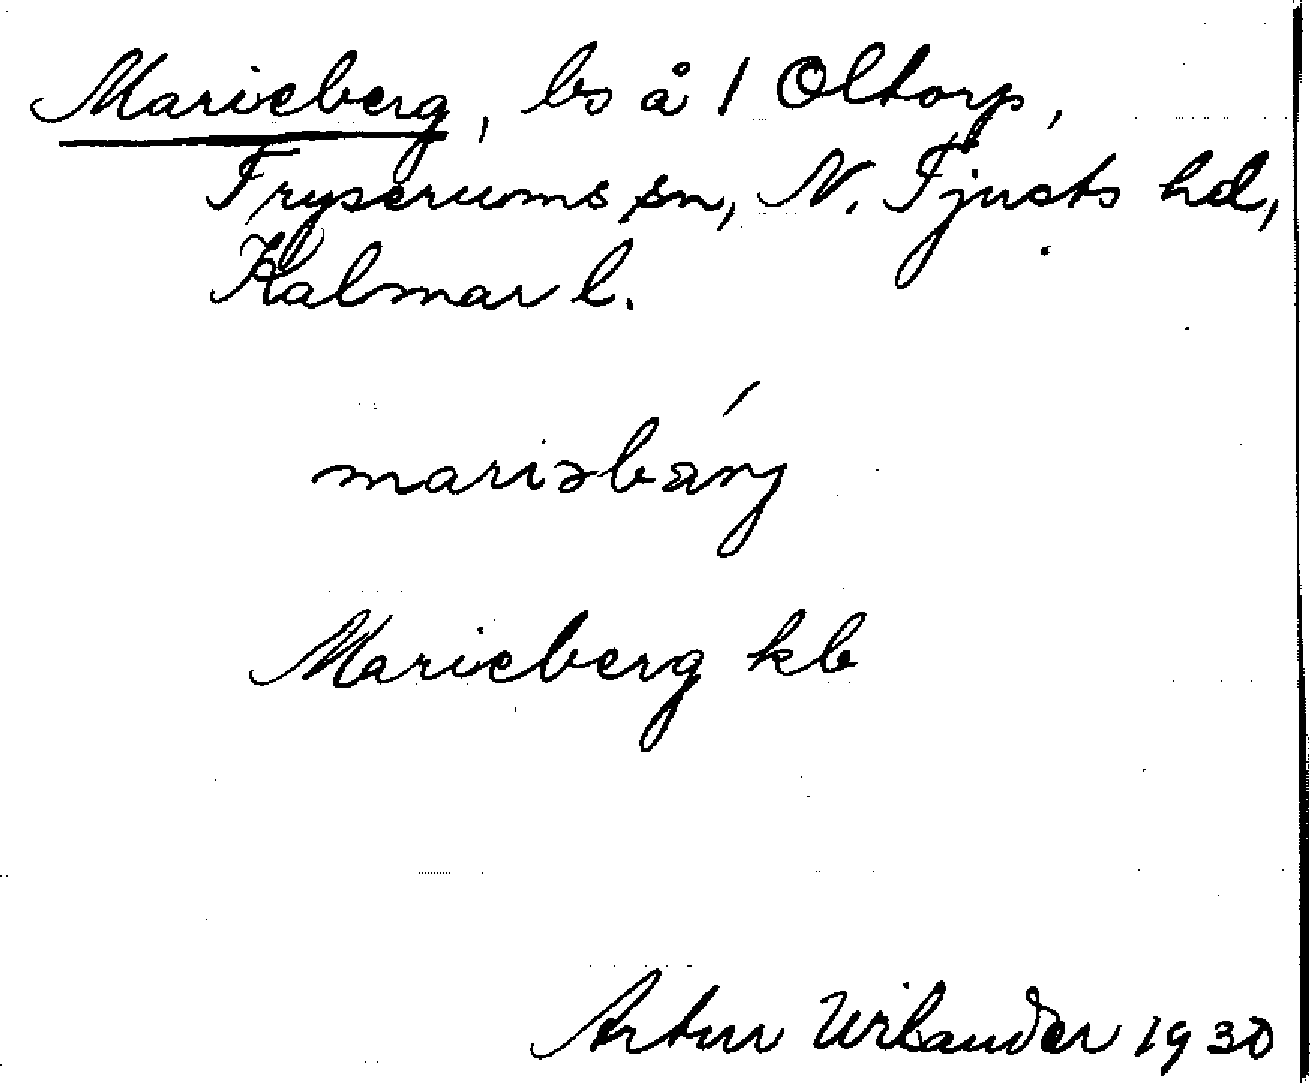 Marieberg, ls å 1 Oltorp,
Fryserums sn, N. Tjusts hd,
Kalmar l.
mariəbärj
Marieberg kb
Artur Wilander 1930